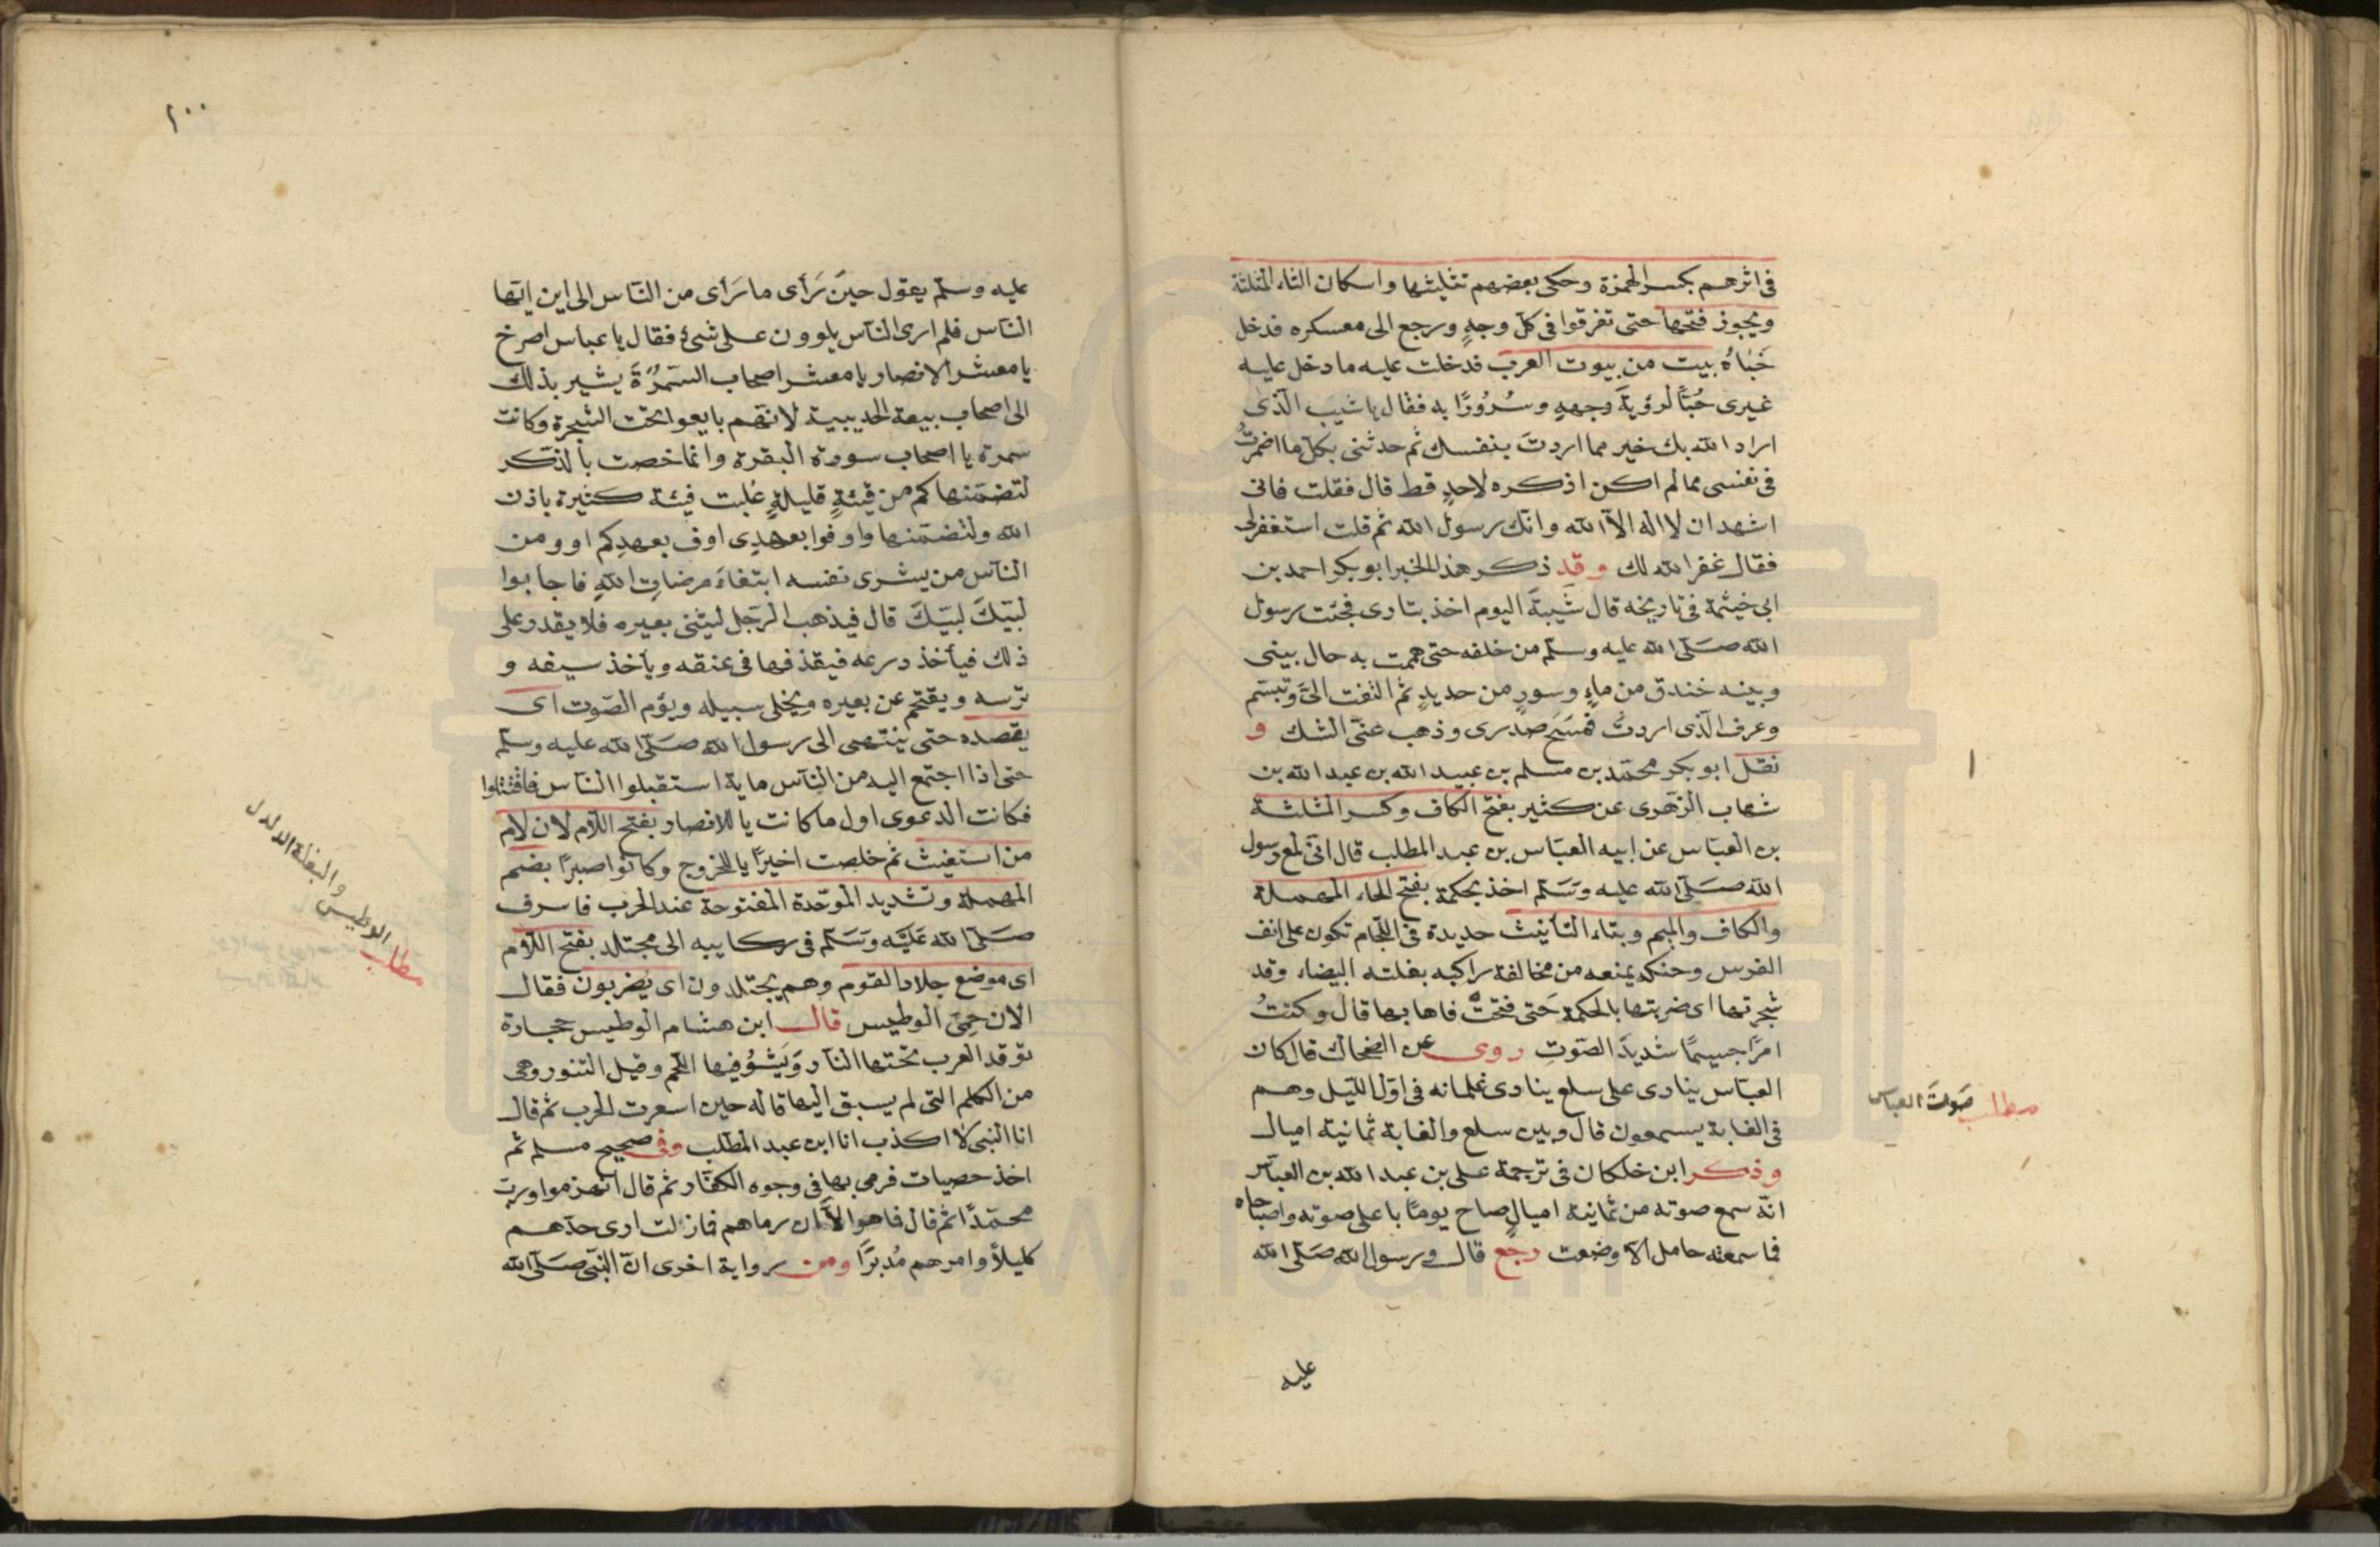 فى اثرهم بكسر الهمزة وحكى بعضهم تثليثها واسكان الثاء المثلثة
ويجوز فتحها حتى تفرقوا فى كل وجهٍ ورجع الى معسكره فدخل
خَبَاهُ بيت من بيوت العرب فدخلت عليه ما دخل عليه
غيرى حُبًّا لرؤية وجههِ وسُرُورًا به فقال يا شيبَ الّذى
اراد الله بك خير مما اردتَ بنفسك ثم حدثنى بكل ما اضمرتُ
فى نفسى مما لم اكن اذكره لاحدٍ قط قال فقلت فانى
اشهد ان لا اله الاّ الله وانّك رسول الله ثم قلت استغفر لى
فقال غفر الله لك وقد ذكر هذا الخبر ابو بكر احمد بن
ابى خيثمة فى تاريخه قال شَيبةَ اليوم اخذ بثارى فجئت رسول
الله صَلّى الله عليه وسلّم من خلفه حتى هممت به حال بينى
وبينه خندق من ماءٍ وسورٍ من حديدٍ ثم التفت الىَّ وتبسّم
وعرف الّذى اردتُ فمسَحَ صدرى وذهب عنّى الشك و
نقل ابو بكر محمّد بن مسلم بن عبيد الله بن عبد الله بن
شهاب الزهرى عن كثير بفتح الكاف وكسر المثلثة
بن العبّاس عن ابيه العبّاس بن عبد المطلب قال انّى لمع رسول
الله صَلّى الله عليه وسَلّم اخذ بحكمة بفتح الحاء المهملة
والكاف والميم وبتاء التأنيث حديدة فى اللّجام تكون على انف
الفرس وحنكه يمنعه من مخالفة راكبه بغلته البيضاء وقد
شجرتها اى ضربتها بالحكمة حَتى فتحتُ فاها بها قال وكنتُ
امرًا جسيمًا شديدَ الصّوتِ روى عن الضحاك قال كان
العبّاس ينادى على سلع ينادى غلمانه فى اوّل اللّيل وهم
فى الغابة يسمعون قال وبين سلع والغابة ثمانية اميال
وذكر ابن خلكان فى ترجمة على بن عبد الله بن العبّاس
انّه سمع صوته من ثمانية اميالٍ صاح يومًا باعلى صوته واصباحاه
فما سمعته حامل الاّ وضعت رجع قال ورسول الله صَلّى الله
عليه
مطلب صَوتَ العباس
١٠٠
عليه وسلّم يقول حينَ رَأى ما رَأى من النّاس الى اين ايّها
النّاس فلم ارى النّاس يلوون على شىءٍ فقال يا عباس اصرخ
يا معشر الانصار يا معشر اصحاب السّمُرَةَ يشير بذلك
الى اصحاب بيعة الحديبية لانّهم بايعوا تحت الشجرة وكانت
سمرة يا اصحاب سورة البقرة وانما خصت بالذكر
لتضمّنها كم من فِئةٍ قليلةٍ غلبت فِئة كثيرة باذن
الله ولتضمّنها واوفوا بعهدِى اوف بعهدِكم او ومن
النّاس من يشرى نفسه ابتغاءَ مرضاتِ اللهِ فاجابوا
لبّيَكَ لبّيَكَ قال فيذهب الرّجل ليثنى بعيره فلا يقدر على
ذلك فيأخذ درعه فيقذفها فى عنقه ويأخذ سيفه و
ترسه ويقتحم عن بعيره ويخلى سبيله ويؤم الصّوت اى
يقصده حتى ينتهى الى رسول الله صَلّى الله عليه وسلّم
حتى اذا اجتمع اليه من النّاس ماية استقبلوا النّاس فاقتتلوا
فكانت الدعوى اول ما كانت يا للانصار بفتح اللّام لان لام
من استغيث ثم خلصت اخيرًا يا للخزرج وكانوا صبرًا بضم
المهملة وتشديد الموحّدة المفتوحة عند الحرب فاسرف
صَلّى الله عَليَه وسَلّم فى ركايبه الى مجتلد بفتح اللّام
اى موضع جلاد القوم وهم يجتلدون اى يُضربون فقال
الان حَمِىَ الوطيس قال ابن هشام الوطيس حجارة
توقد العرب تحتها النّار وَيَشوُو فيها اللحم وقيل التنور وهى
من الكلم التى لم يسبق اليها قاله حين اسعرت الحرب ثم قال
انا النبى لا اكذب انا ابن عبد المطّلب وفى صحيح مسلم ثم
اخذ حصيات فرمى بها فى وجوه الكفّار ثم قال انهزموا ورب
محمّدًا ثم قال فما هو الاّ ان رماهم فما زلت ارى حدّهم
كليلاً وامرهم مُدبرًا ومن رواية اخرى انّ النّبىّ صَلّى الله
مطلب الوطيس والبغلة الدلدل